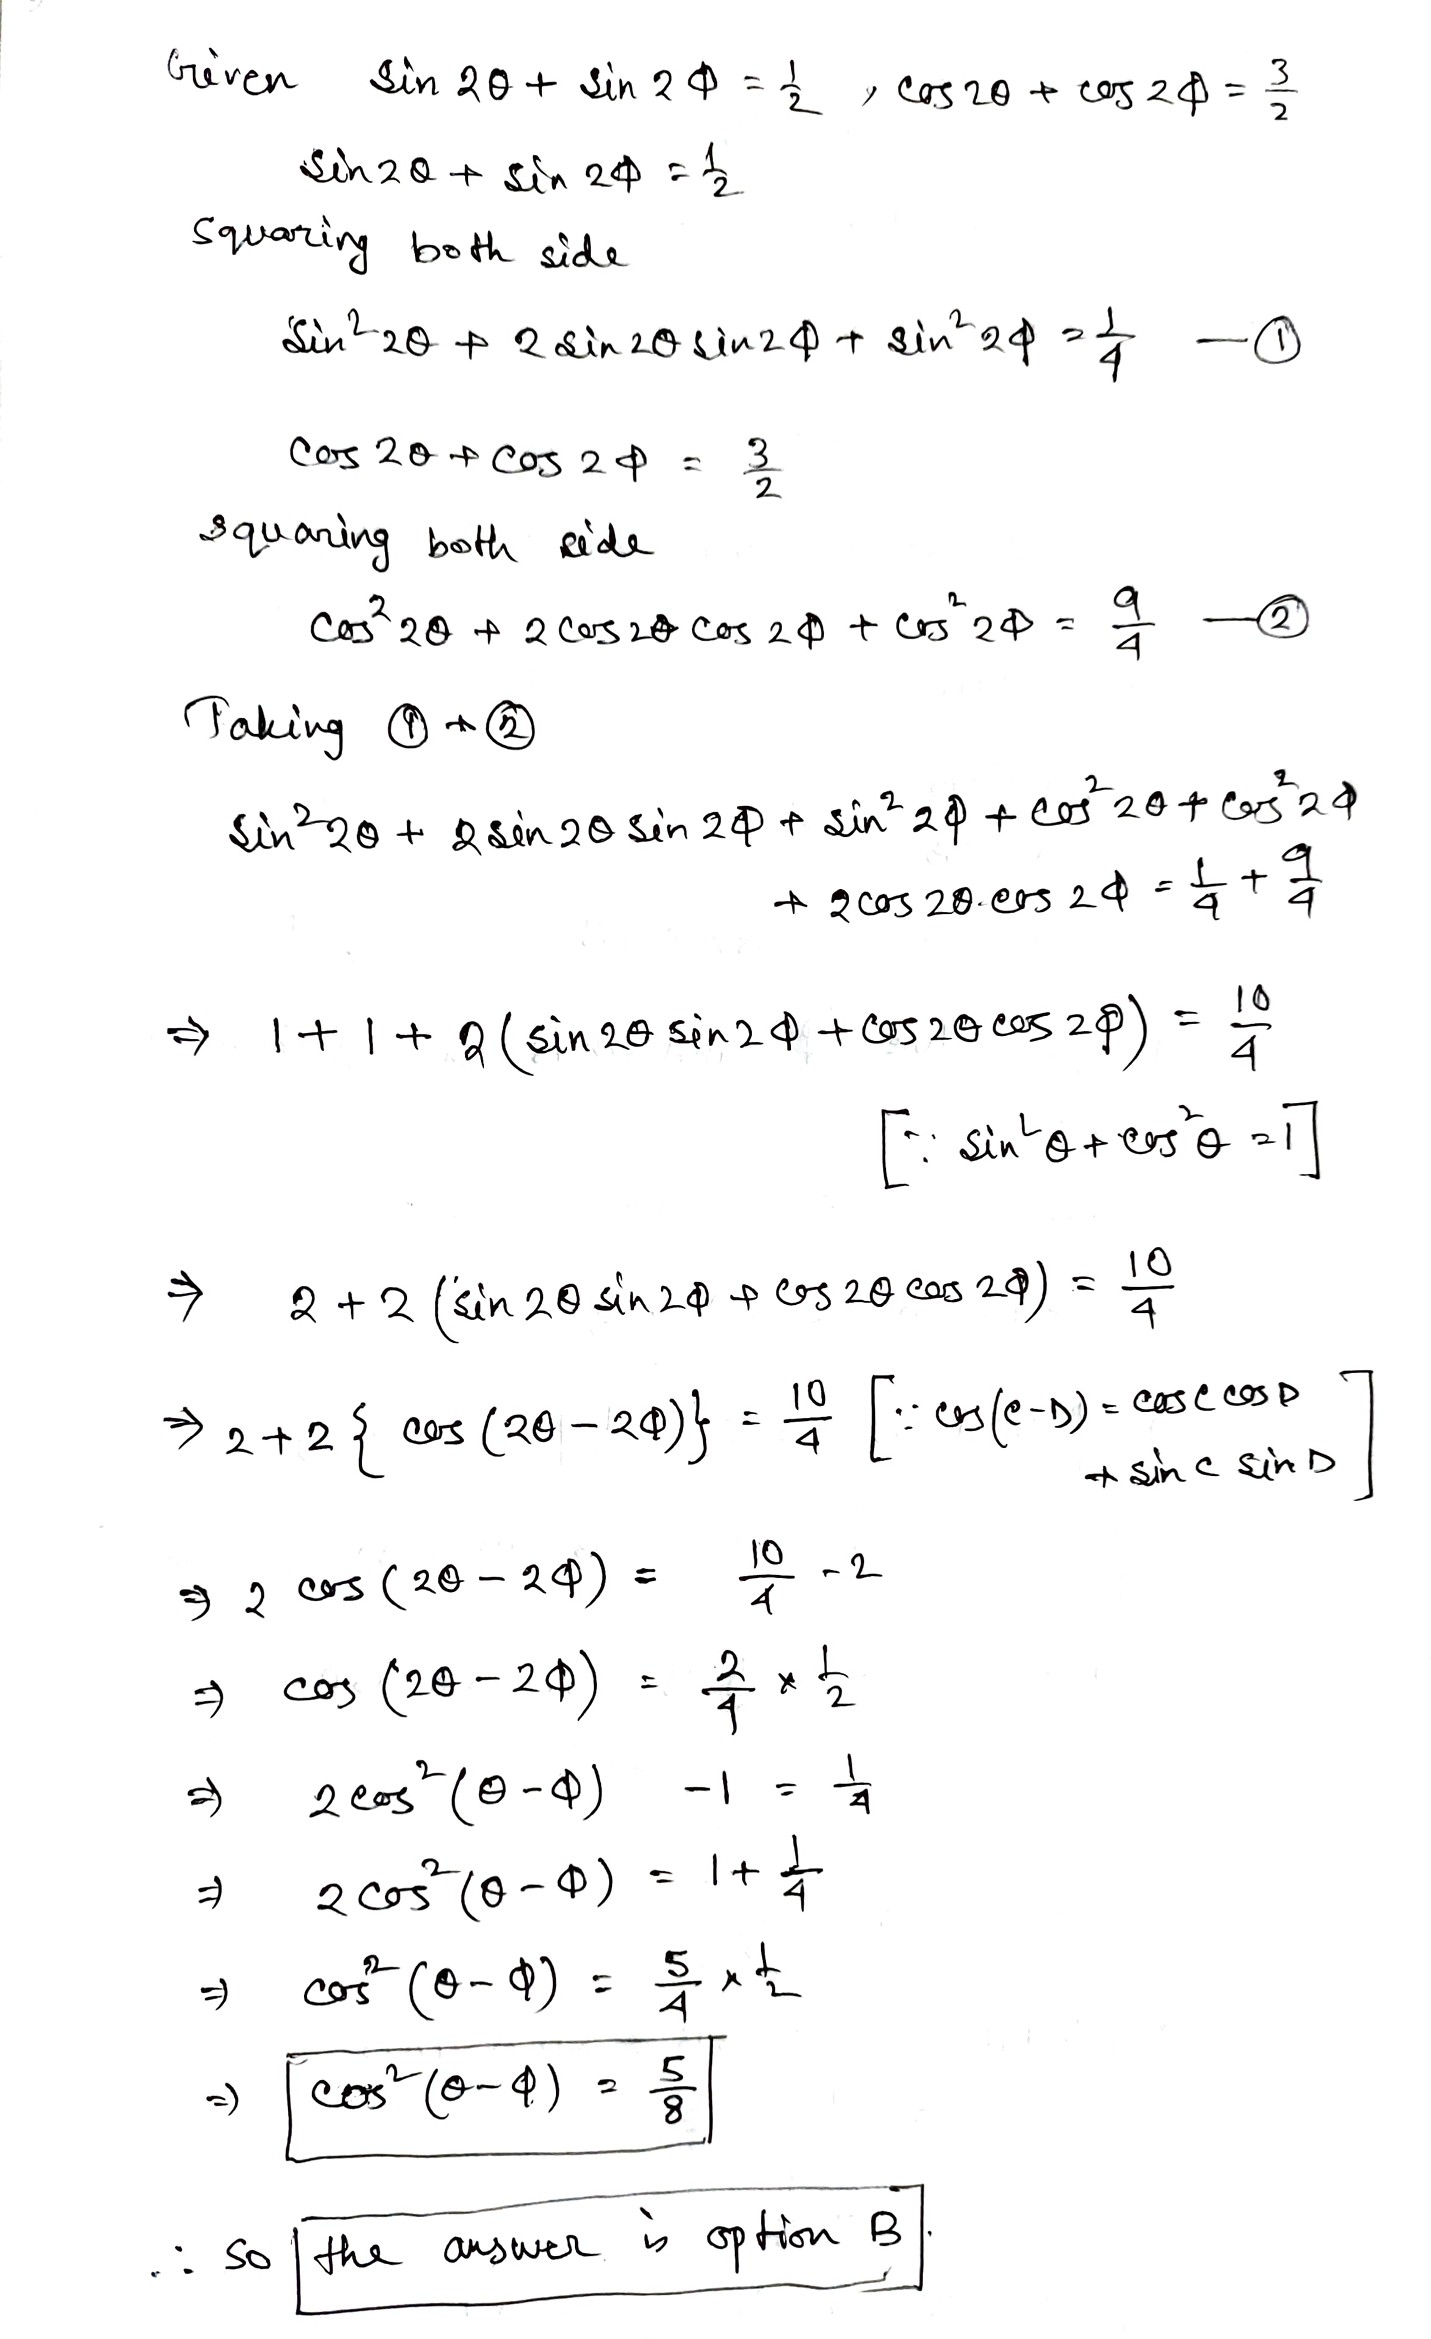 Given sin 2θ + sin 2Φ = 1/2 , cos 2θ + cos 2Φ = 3/2
sin 2θ + sin 2Φ = 1/2
squaring both side
sin² 2θ + 2 sin 2θ sin 2Φ + sin² 2Φ = 1/4 — ①
cos 2θ + cos 2Φ = 3/2
squaring both side
cos² 2θ + 2 cos 2θ cos 2Φ + cos² 2Φ = 9/4 — ②
Taking ① + ②
sin² 2θ + 2 sin 2θ sin 2Φ + sin² 2Φ + cos² 2θ + cos² 2Φ
+ 2 cos 2θ . cos 2Φ = 1/4 + 9/4
⇒ 1 + 1 + 2 (sin 2θ sin 2Φ + cos 2θ cos 2Φ) = 10/4
[∵ sin² θ + cos² θ = 1]
⇒ 2 + 2 (sin 2θ sin 2Φ + cos 2θ cos 2Φ) = 10/4
⇒ 2 + 2 { cos (2θ – 2Φ)} = 10/4 [∵ cos (C – D) = cos C cos D
+ sin C sin D]
⇒ 2 cos (2θ – 2Φ) = 10/4 - 2
⇒ cos (2θ – 2Φ) = 2/4 × 1/2
⇒ 2 cos² (θ – Φ) – 1 = 1/4
⇒ 2 cos² (θ – Φ) = 1 + 1/4
⇒ cos² (θ – Φ) = 5/4 × 1/2
⇒ cos² (θ – Φ) = 5/8
∴ so the answer is option B.